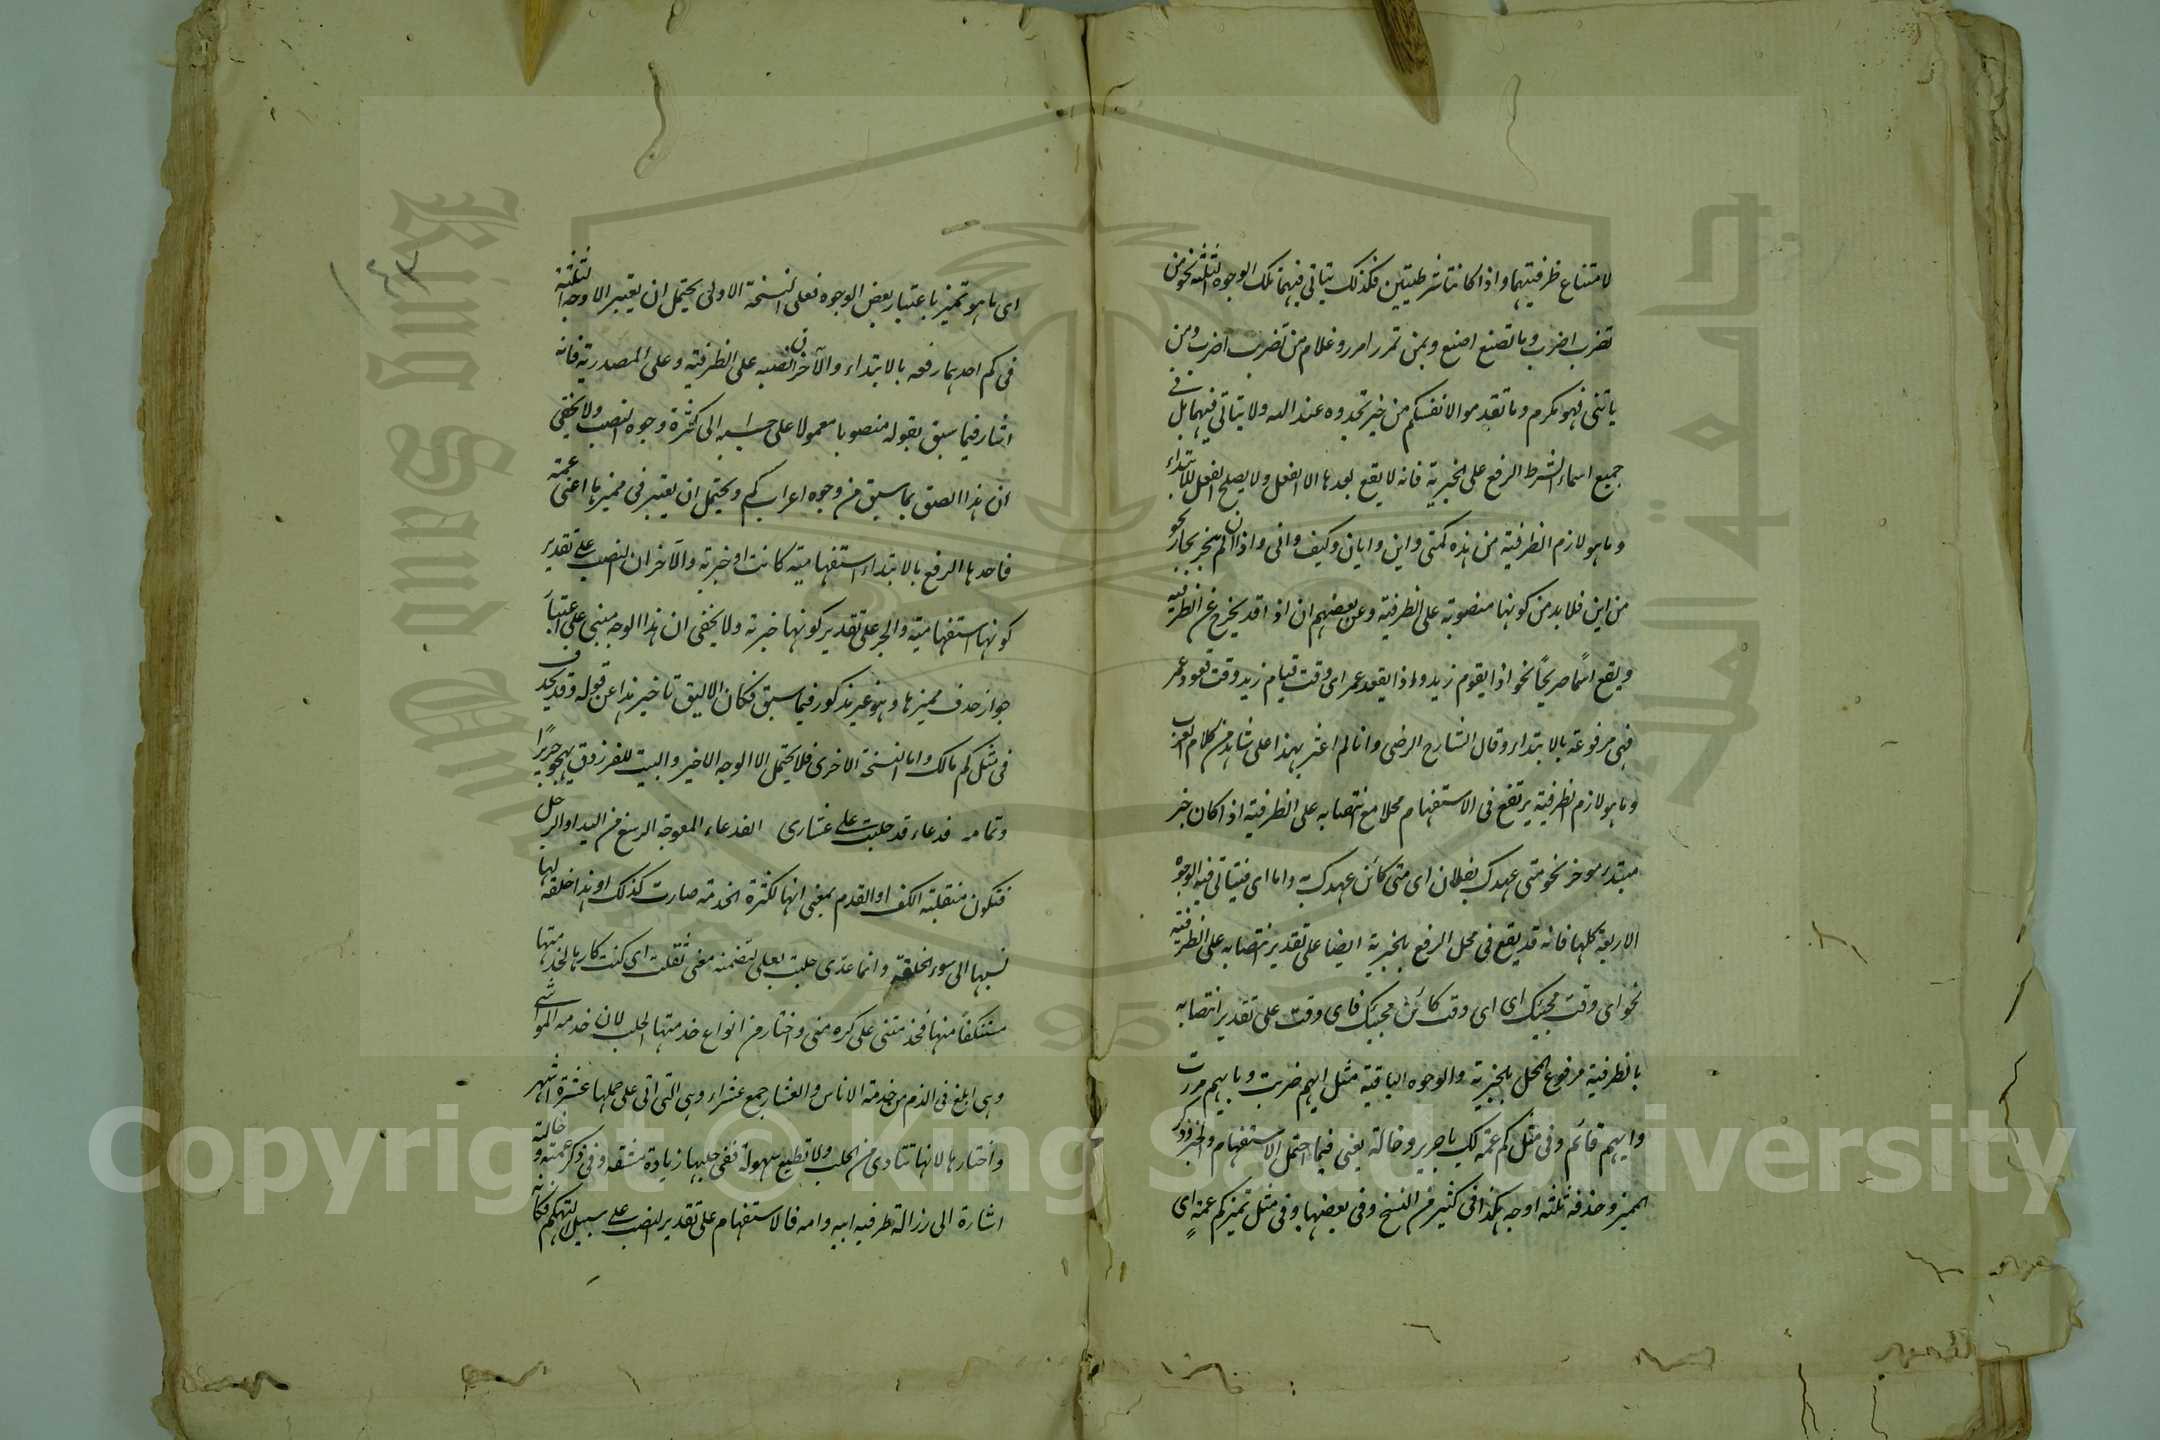 لامتناع ظرفيتهما واذا كانتا شرطيتين فكذلك يتاتى فيهما تلك الوجوه الثلثة نحو من
تضرب اضرب وما تصنع اصنع وبمن تمرر امرر وغلام من تضرب اضرب ومن
ياتنى فهو مكرم وما تقدموا لانفسكم من خير تجدوه عند الله ولا يتاتى فيهما بل في
جميع اسماء الشرط الرفع على الخبرية فانه لا يقع بعدها الا الفعل ولا يصلح الفعل للابتداء
وما هو لازم الظرفية من هذه كمتى واين وايان وكيف وانى واذا ان لم ينجر بجار نحو
من اين فلا بد من كونها منصوبة على الظرفية وعن بعضهم ان اذا قد يخرج عن الظرفية
ويقع اسما صريحا نحو اذا يقوم زيد واذا يقعد عمر اى وقت قيام زيد وقت قعود عمر
فهى مرفوعة بالابتداء وقال الشارح الرضى وانا لم اعثر بهذا على شاهد من كلام العرب
وما هو لازم لظرفية يرتفع فى الاستفهام محلا مع انتصابه على الظرفية اذا كان خبر
مبتدء موخر نحو متى عهدك بفلان اى متى كائن عهدك به واما اى فيتاتى فيه الوجوه
الاربعة كلها فانه قد يقع فى محل الرفع بالخبرية ايضا على تقدير انتصابه على الظرفية
نحو اى وقت مجيئك اى اى وقت كائن مجيئك فاى وقت على تقدير انتصابه
بالظرفية مرفوع المحل بالخبرية والوجوه الباقية مثل ايهم ضربت وبايهم مررت
وايهم قائم وفى مثل كم عمة لك يا جرير وخالة يعنى فيما احتمل الاستفهام والخبر وذكر
المميز وحذفه ثلثه اوجه هكذا فى كثير من النسخ وفى بعضها وفى مثل تميز كم عمة اى
اى ما هو تميز باعتبار بعض الوجوه فعلى النسخة الاولى يحتمل ان يعتبر الاوجه الثلثة
فى كم احدها رفعه بالابتداء والآخران نصبه على الظرفية وعلى المصدرية فانه
اشار فيما سبق بقوله منصوبا معمولا على حسبه الى كثرة وجوه النصب ولا يخفى
ان هذا الصق بما سبق من وجوه اعراب كم ويحتمل ان يعتبر فى مميزها اعنى عمة
فاحدها الرفع بالابتداء استفهامية كانت او خبرية والآخران النصب على تقدير
كونها استفهامية والجر على تقدير كونها خبرية ولا يخفى ان هذا الوجه مبنى على اعتبار
جواز حذف مميزها وهو غير مذكور فيما سبق فكان الاليق تاخير هذا عن قوله وقد يحذف
فى مثل كم مالك واما النسخة الاخرى فلا يحتمل الا الوجه الاخير والبيت للفرزدق يهجو جريرا
وتمامه فدعاء قد حلبت على عشارى الفدعاء المعوجة الرسغ من اليد او الرجل
فتكون منقلبة الكف او القدم بمعنى انها لكثرة الخدمة صارت كذلك او هذا خلقة لها
نسبها الى سوء الخلقة وانما عدى حلبت بعلى لتضمنه معنى ثقلت اى كنت كارها لخدمتها
مستنكفا منها فخدمتنى على كره منى واختار من انواع خدمتها الحلب لان خدمة المواشى
وهى ابلغ فى الذم من خدمة الاناس والعشار جمع عشراء وهى التى اتى على حملها عشرة اشهر
واختارها لانها تتاذى من الحلب ولا تطيع بسهولة ففى حلبها زيادة مشقة وفى ذكر عمة وخالة
اشارة الى رزالة طرفيه ابيه وامه فالاستفهام على تقدير النصب على سبيل التهكم فكانه
Copyright © King Saud University